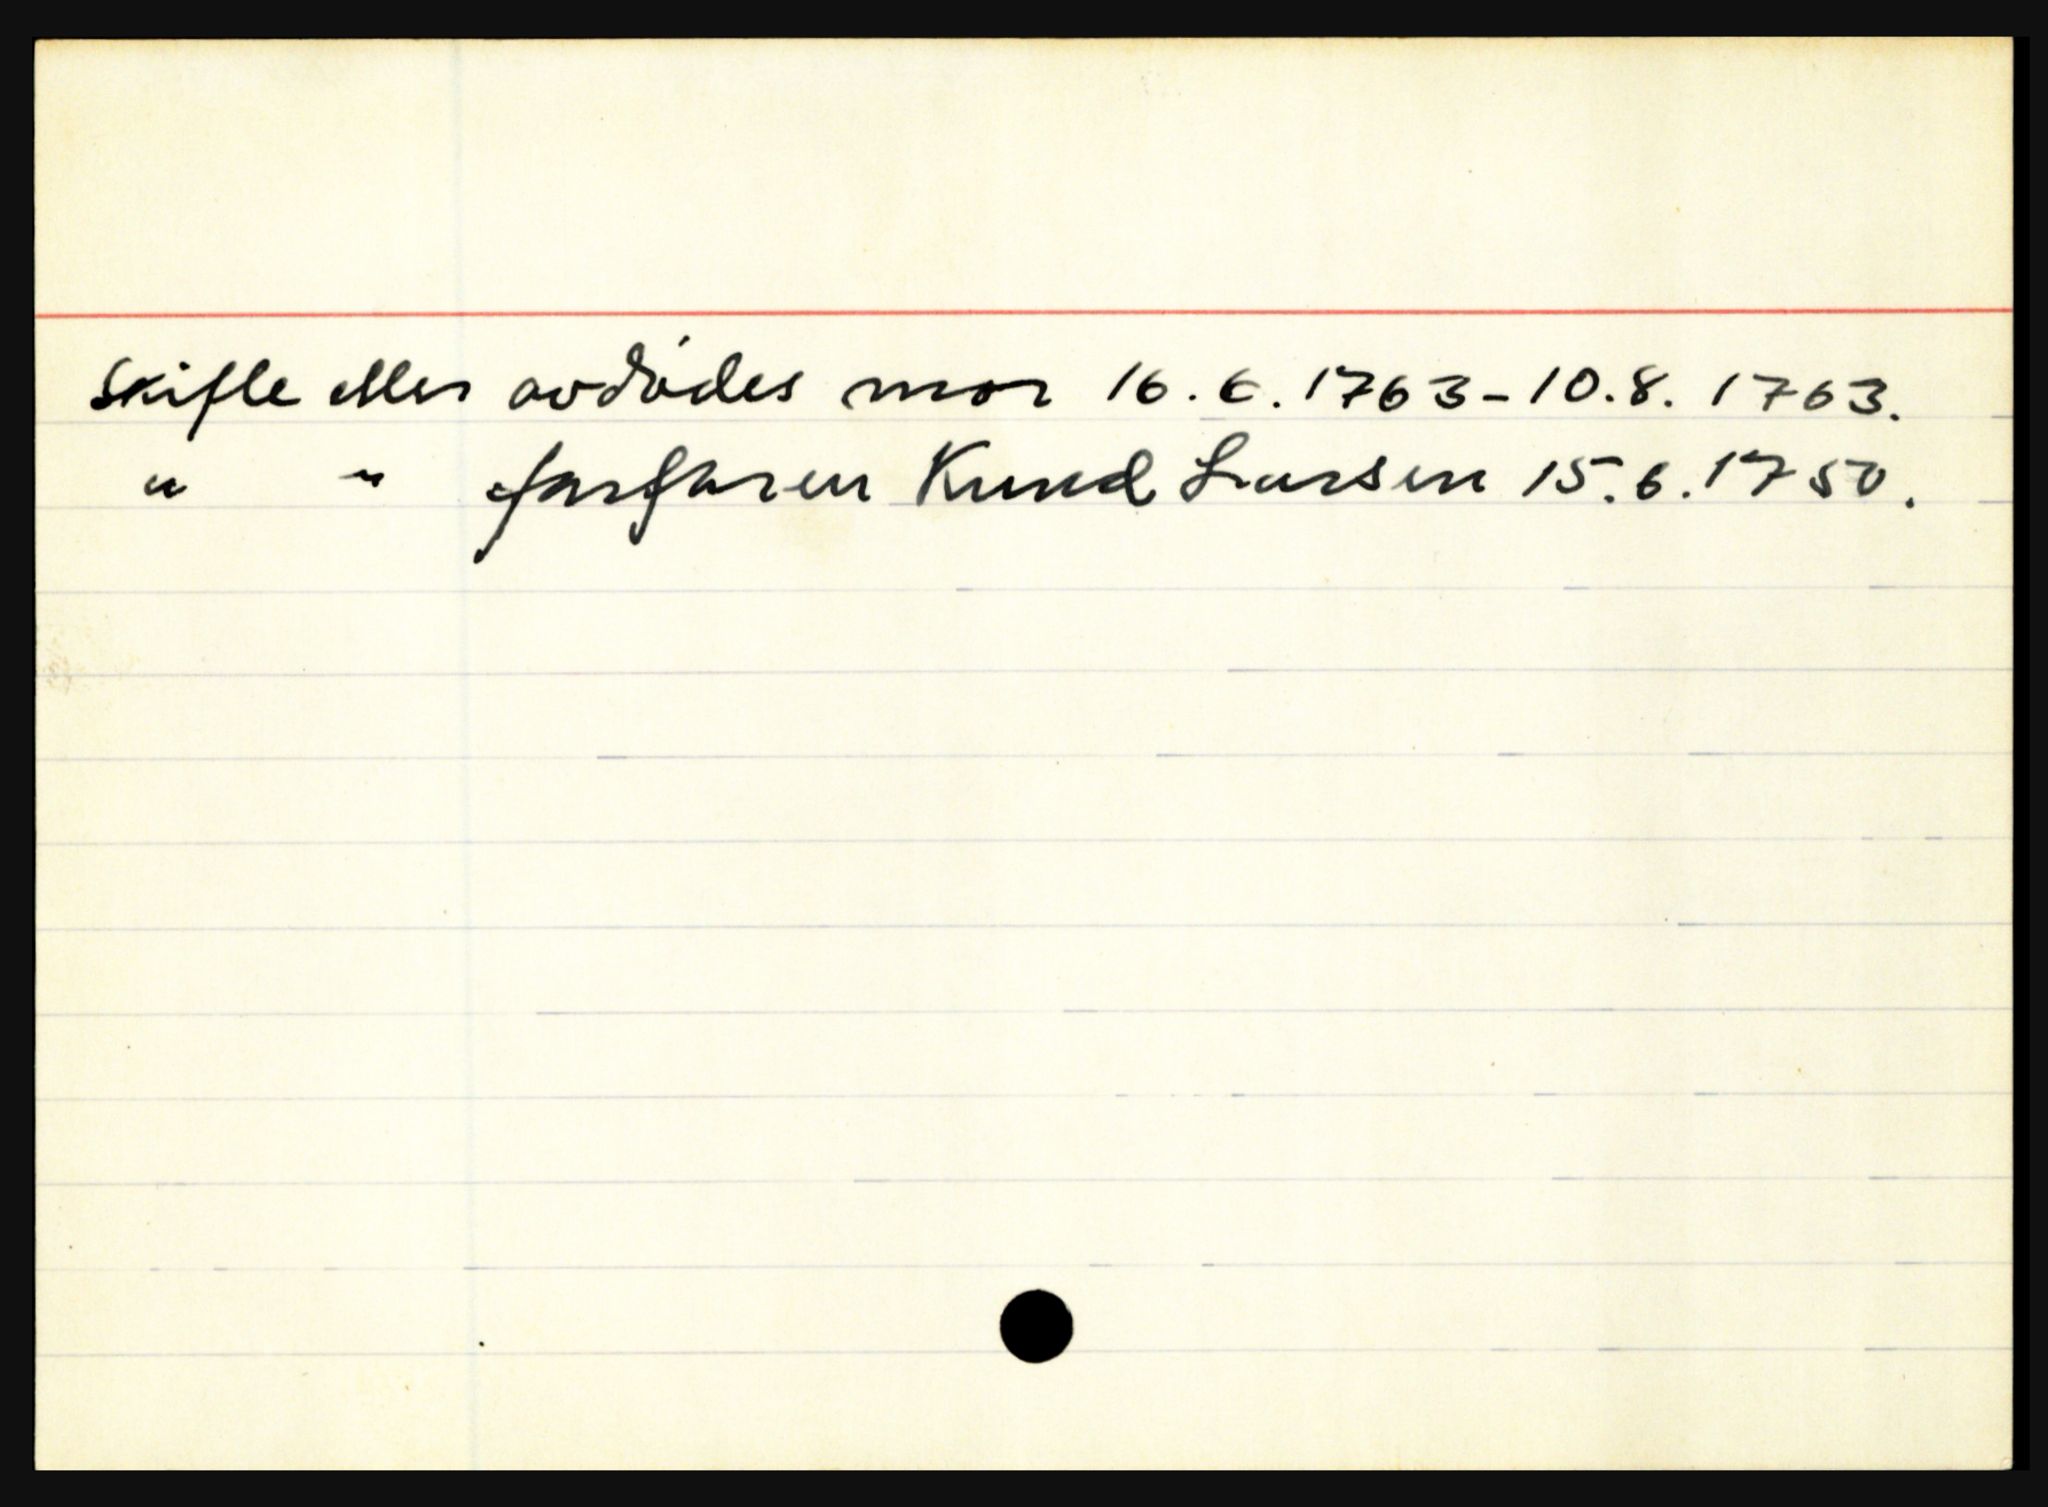 Skifte etter avdødes mor 16.6.1763-10.8.1763.
" " farfaren Knud Larsen 15.6.1750.